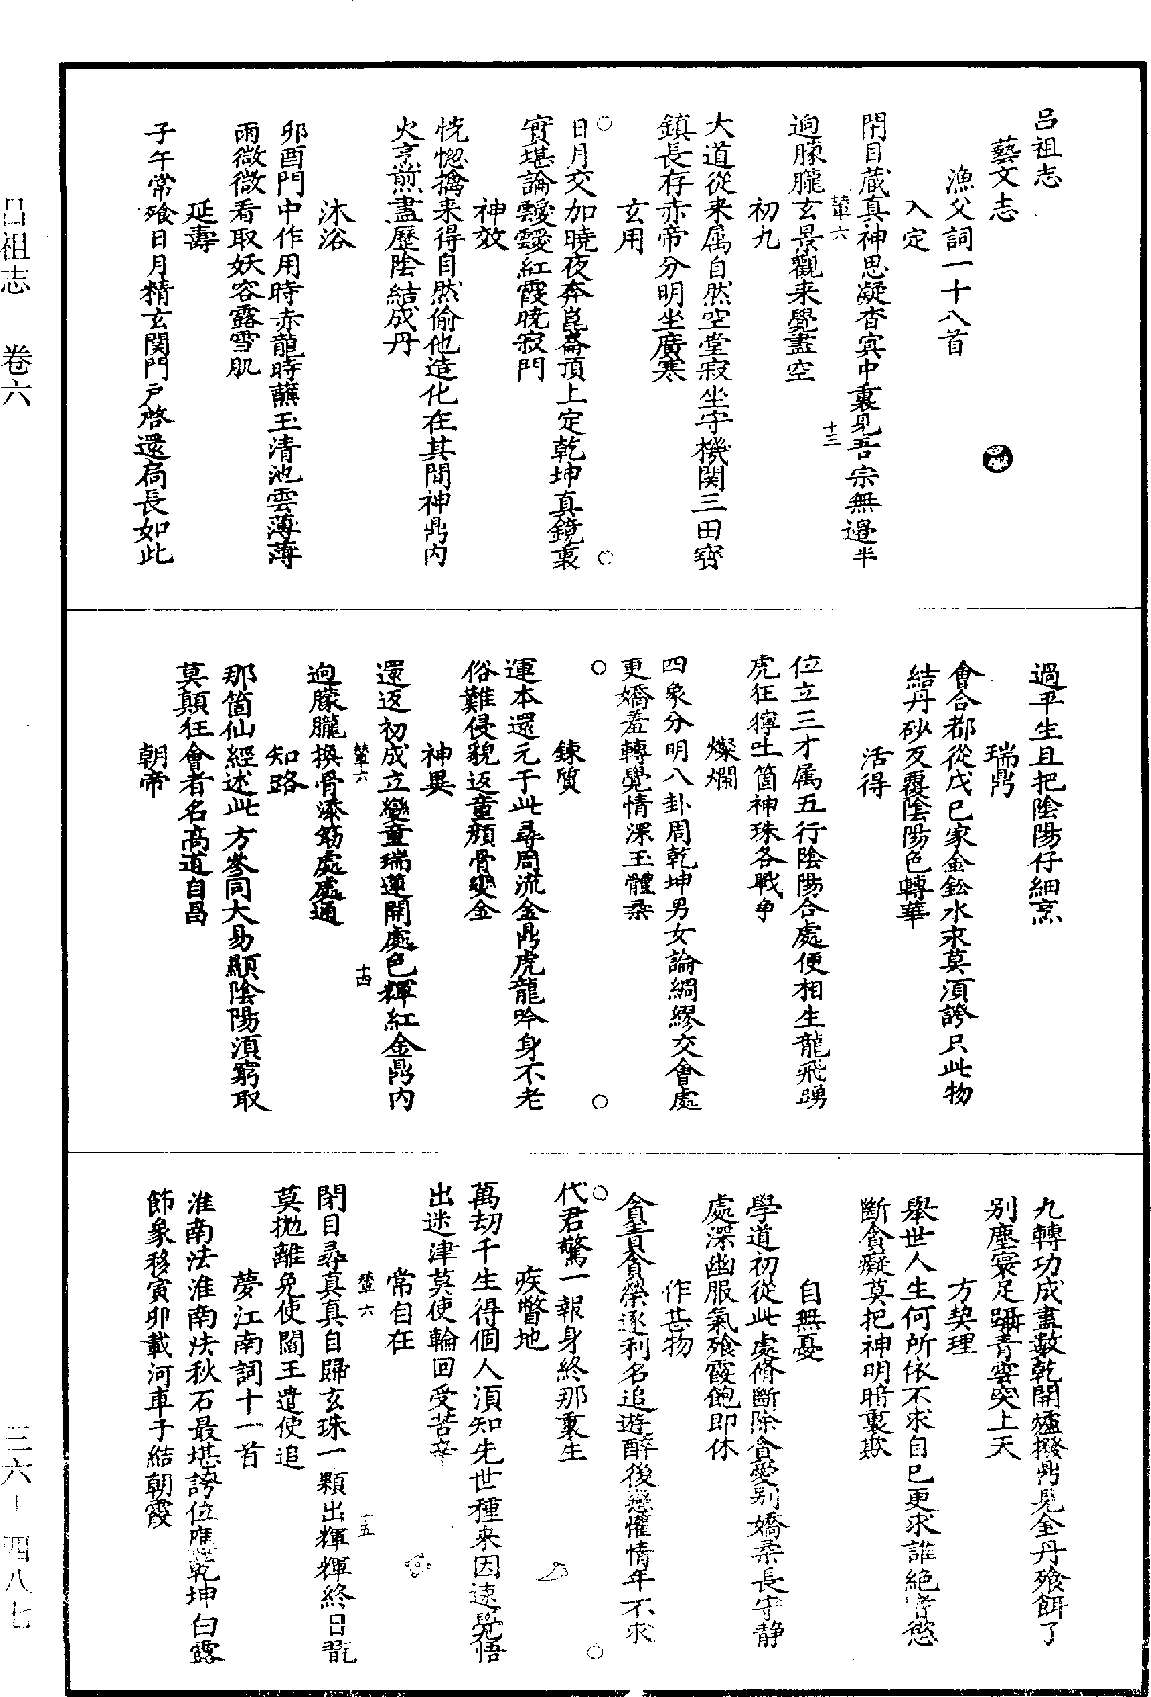 呂祖志
藝文志
漁父詞一十八首
入定
閉目藏真神思凝杳冥中裏見吾宗無邊半
輦六
十三
逈朦朧玄景觀来覺盡空
初九
大道從来属自然空堂寂坐守機関三田寳
鎮長存赤帝分明坐廣寒
玄用
日月交加曉夜奔崑崙頂上定乾坤真鏡裏
實堪論靉靉紅霞曉寂門
神效
恍惚擒来得自然偷他造化在其間神鼎内
火烹煎盡歷陰結成丹
沐浴
卯酉門中作用時赤龍時蘸玉清池雲薄薄
雨微微看取妖容露雪肌
延壽
子午常飱日月精玄関門戶啓還扃長如此
過平生且把陰陽仔細烹
瑞鼎
會合都從戊巳家金鈆水汞莫須誇只此物
結丹砂反覆陰陽色轉華
活得
位立三才属五行陰陽合處便相生龍飛踴
虎狂獰吐箇神珠各戰争
燦爛
四象分明八卦周乾坤男女論綢繆交會處
更嬌羞轉覺情深玉體柔
錬質
運本還元于此尋周流金鼎虎龍吟身不老
俗難侵貌返童顏骨變金
神異
還返初成立變童瑞蓮開處色輝紅金鼎内
輦六
十四
逈朦朧換骨添筋處處通
知路
那箇仙經述此方參同大易顯陰陽須窮取
莫顛狂會者名髙道自昌
朝帝
九轉功成盡數乾開爐撥鼎見金丹飱餌了
别塵寰足躡青雲突上天
方契理
舉世人生何所依不求自巳更求誰絶嗜慾
斷貪癡莫把神明暗裏欺
自無憂
學道初從此處修斷除貪愛别嬌柔長守静
處深幽服氣飱霞飽即休
作甚物
貪貴貪榮逐利名追遊醉後戀懽情年不永
代君驚一報身終那裏生
疾瞥地
萬劫千生得個人須知先世種来因速覺悟
出迷津莫使輪回受苦辛
常自在
閉目尋真真自歸玄珠一顆出輝輝終日翫
輦六
十五
莫抛離免使閻王遣使追
夢江南詞十一首
淮南法淮南法秋石最堪誇位應乾坤白露
節象移寅卯載河車子結朝霞
呂祖志 卷六
三六－四八七